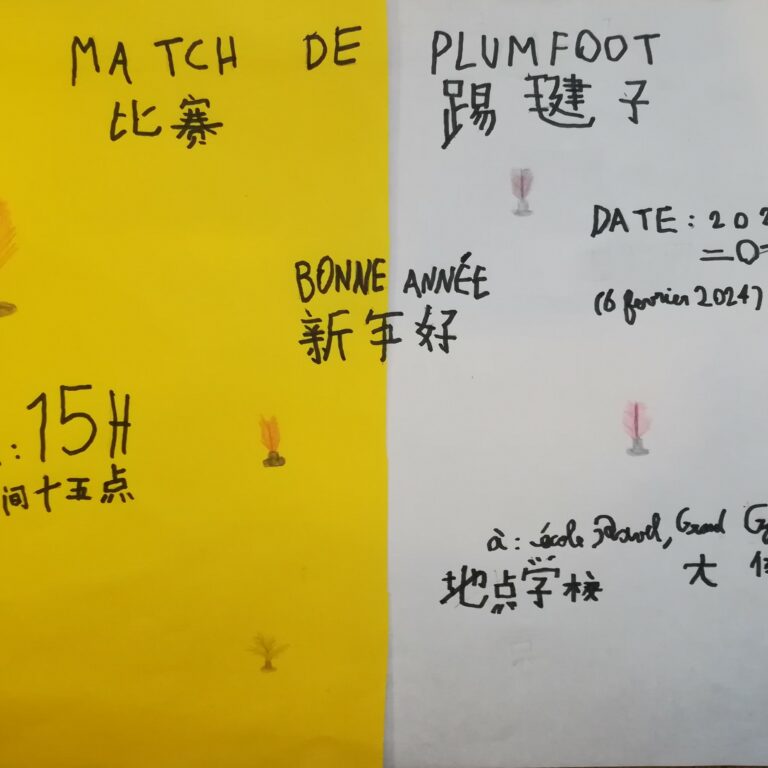 MATCH DE PLUMFOOT
比赛 踢毽子
DATE: 202
二〇
(6 fevrier 2024)
BONNE ANNÉE
新年好
: 15H
间十五点
à: école Ravel, Grand
地点学校 大